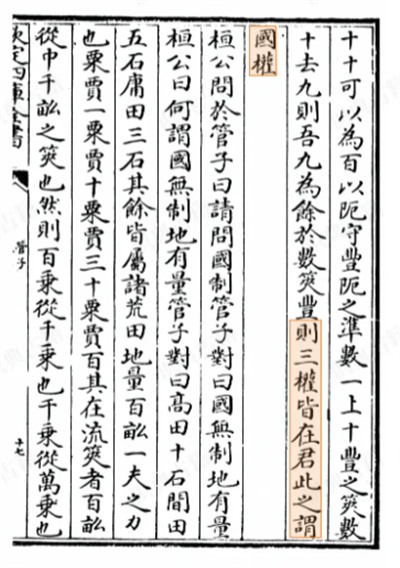 十十可以為百以阨守豐阨之準數一上十豐之筴數
十去九則吾九為餘於數筴豐則三權皆在君此之謂
國權
桓公問於管子曰請問國制管子對曰國無制地有量
桓公曰何謂國無制地有量管子對曰高田十石間田
五石庸田三石其餘皆屬諸荒田地量百畝一夫之力
也粟賈一粟賈十粟賈三十粟賈百其在流筴者百畝
從中千畝之筴也然則百乘從千乘也千乘從萬乘也
欽定四庫全書
管子
十七